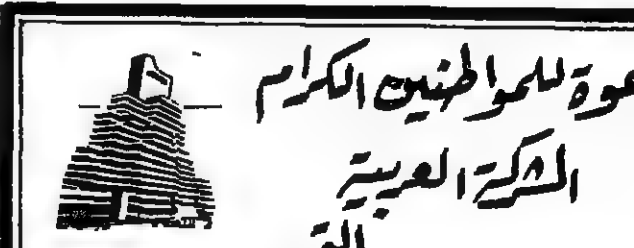 عوة للمواطنين الكرام
الشركة العربية